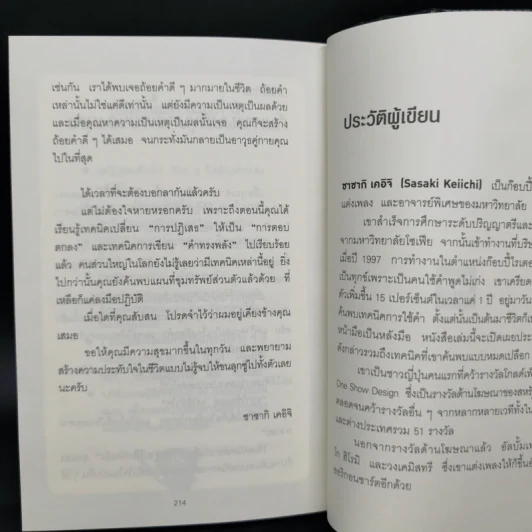 เช่นกัน เราได้พบเจอถ้อยคำดี ๆ มากมายในชีวิต ถ้อยคำ
เหล่านั้นไม่ใช่แค่ดีเท่านั้น แต่ยังมีความเป็นเหตุเป็นผลด้วย
และเมื่อคุณหาความเป็นเหตุเป็นผลนั้นเจอ คุณก็จะสร้าง
ถ้อยคำดี ๆ ได้เสมอ จนกระทั่งมันกลายเป็นอาวุธคู่กายคุณ
ไปในที่สุด
ได้เวลาที่จะต้องบอกลากันแล้วครับ
แต่ไม่ต้องใจหายหรอกครับ เพราะถึงตอนนี้คุณได้
เรียนรู้เทคนิคเปลี่ยน “การปฏิเสธ” ให้เป็น “การตอบ
ตกลง” และเทคนิคการเขียน “คำทรงพลัง” ไปเรียบร้อย
แล้ว คนส่วนใหญ่ในโลกยังไม่รู้เลยว่ามีเทคนิคเหล่านี้อยู่ ยิ่ง
ไปกว่านั้นคุณยังค้นพบแผนที่ขุมทรัพย์ส่วนตัวแล้วด้วย ที่
เหลือก็แค่ลงมือปฏิบัติ
เมื่อใดที่คุณสับสน โปรดจำไว้ว่าผมอยู่เคียงข้างคุณ
เสมอ
ขอให้คุณมีความสุขมากขึ้นในทุกวัน และพยายาม
สร้างความประทับใจในชีวิตแบบไม่รู้จบให้ขนลุกซู่ไปทั้งตัวเลย
นะครับ
ซาซากิ เคอิจิ
214
ประวัติผู้เขียน
ซาซากิ เคอิจิ (Sasaki Keiichi) เป็นก๊อบปี้
แต่งเพลง และอาจารย์พิเศษของมหาวิทยาลัย
เขาสำเร็จการศึกษาระดับปริญญาตรีและ
จากมหาวิทยาลัยโซเฟีย จากนั้นเข้าทำงานที่บริษ
เมื่อปี 1997 การทำงานในตำแหน่งก๊อบปี้ไรเตอ
เป็นทุกข์เพราะเป็นคนใช้คำพูดไม่เก่ง เขาเครียด
ตัวเพิ่มขึ้น 15 เปอร์เซ็นต์ในเวลาแค่ 1 ปี อยู่มาวัน
ค้นพบเทคนิคการใช้คำ ตั้งแต่นั้นเป็นต้นมาชีวิตก็
หน้ามือเป็นหลังมือ หนังสือเล่มนี้จะเปิดเผยประ
ดังกล่าวรวมถึงเทคนิคที่เขาค้นพบแบบหมดเปลือก
เขาเป็นชาวญี่ปุ่นคนแรกที่คว้ารางวัลโกลด์เพ้
One Show Design ซึ่งเป็นรางวัลด้านโฆษณาของสหรั
ตลอดจนคว้ารางวัลอื่น ๆ จากหลากหลายเวทีทั้งใ
และต่างประเทศรวม 51 รางวัล
นอกจากรางวัลด้านโฆษณาแล้ว อัลบั้มเพ
โก ฮิโรมิ และวงเคมิสทรี ซึ่งเขาแต่งเพลงให้ก็ขึ้นอั
ออริกอนชาร์ตอีกด้วย